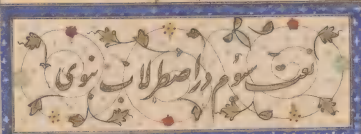 نعت سوم در اصطرلاب بنوی